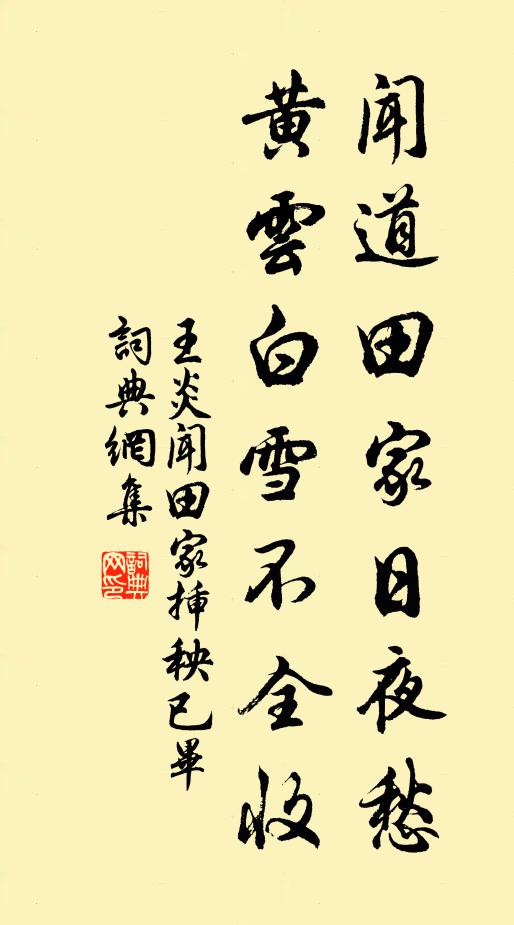 聞道田家日夜愁
黃雲白雪不全收
王炎聞田家插秧已畢
詞典網集
詞典網印